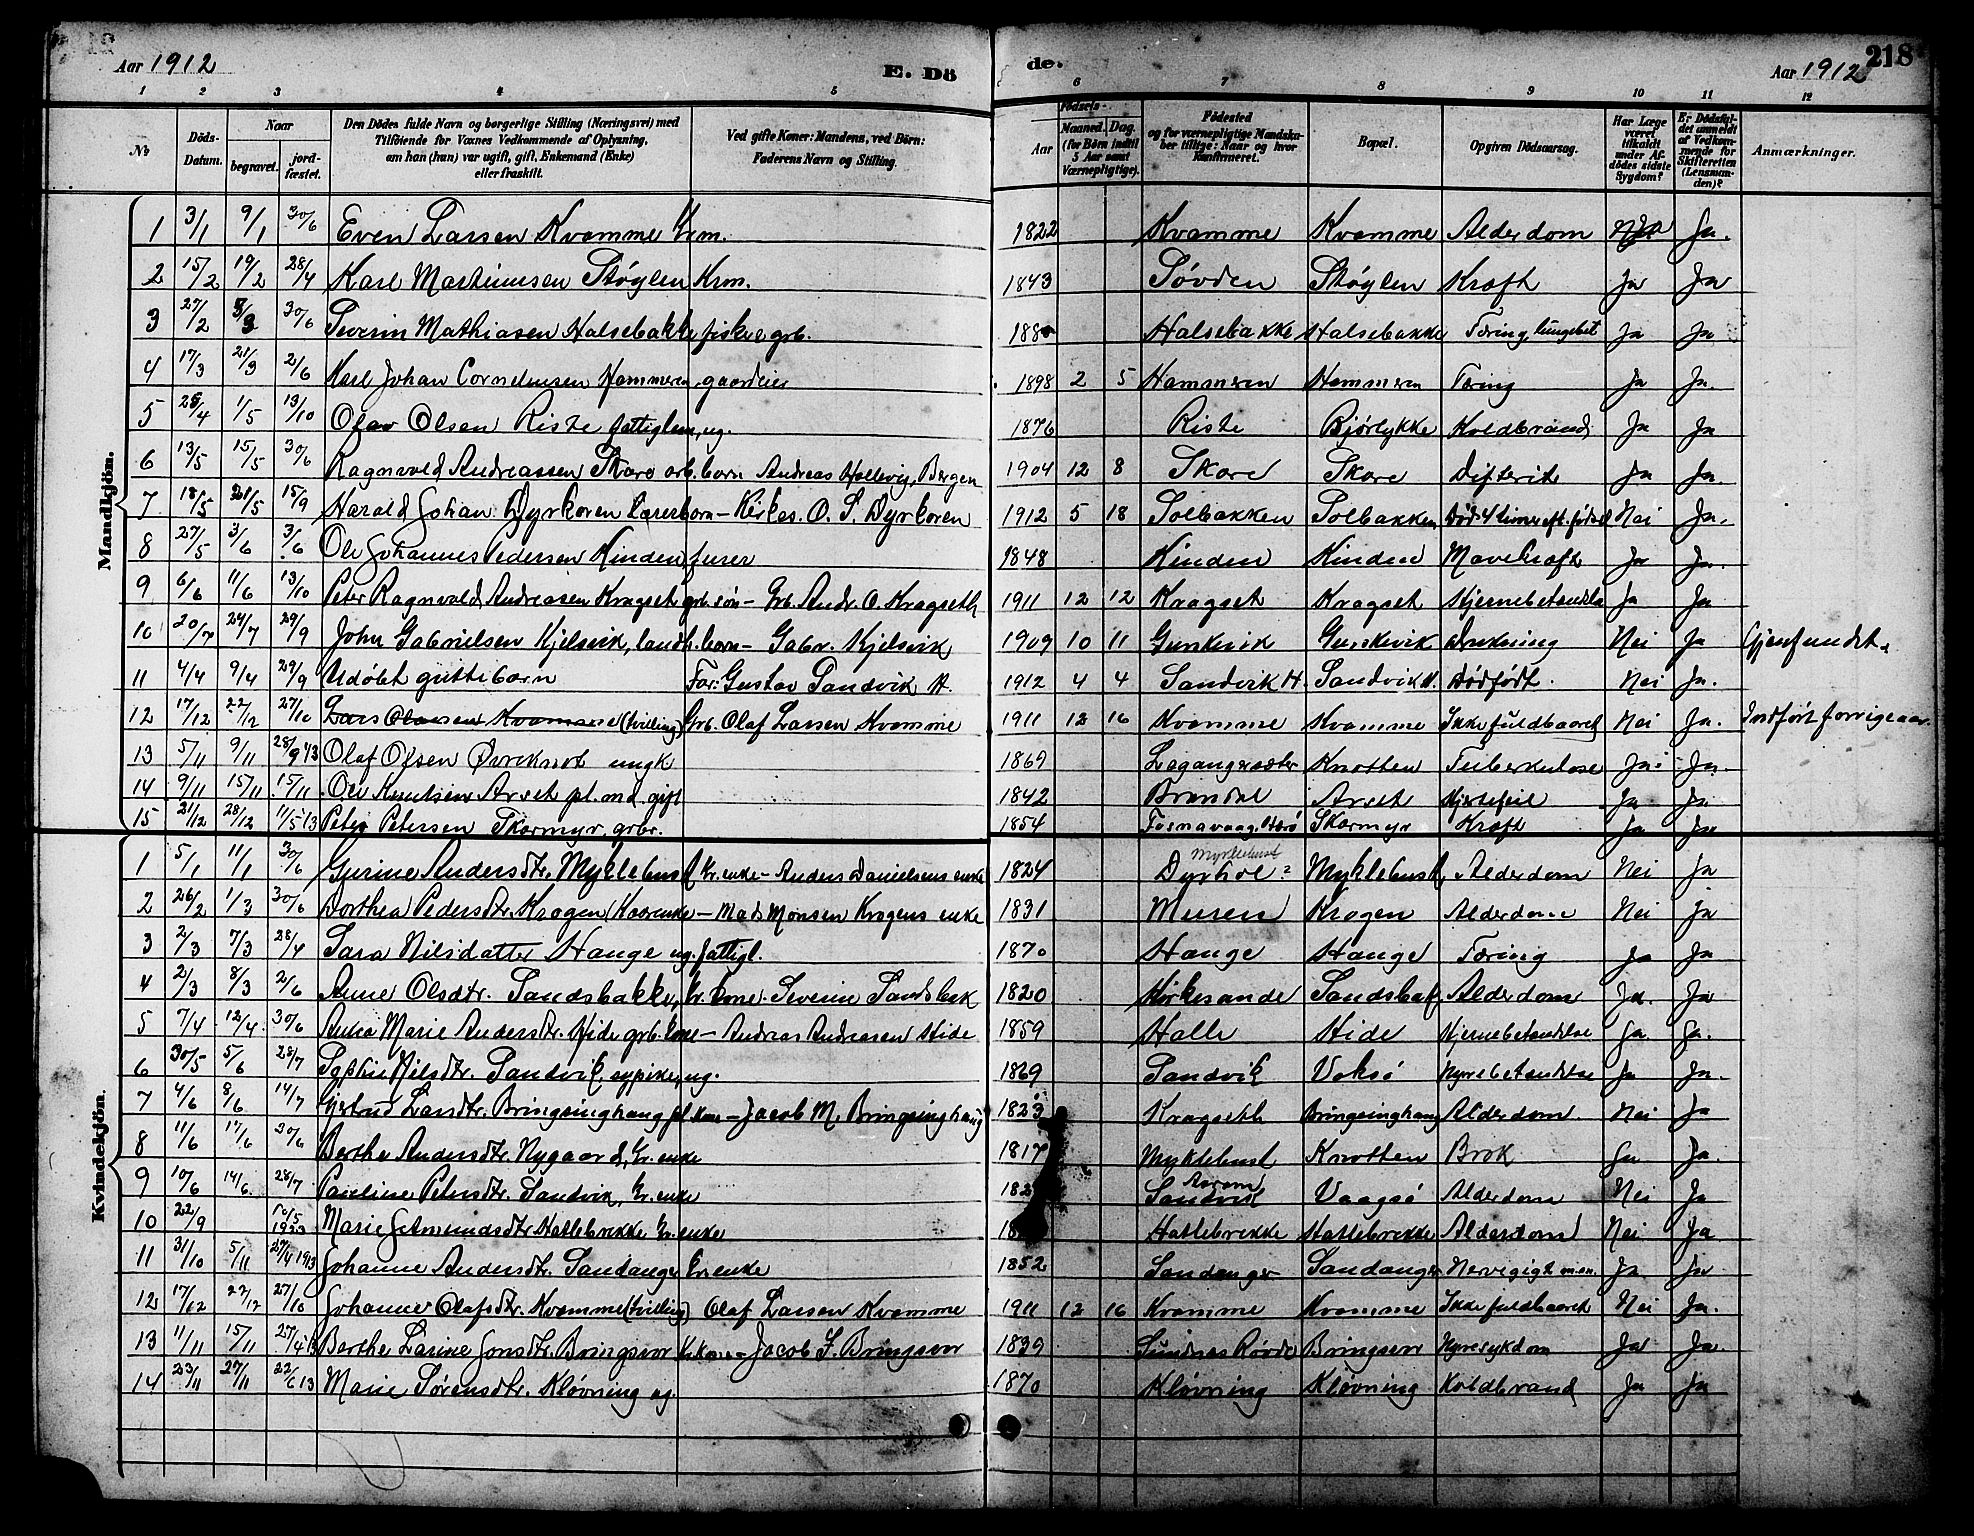 Aar 1912 E. Dö de. Aar 1912 218
1 2 3 4 5 6 7 8 9 10 11 12
№ Döds-Datum. Naar begravet. jordfæstet. Den Dödes fulde Navn og borgerlige Stilling (Næringsvei) med Tilföiende for Voxnes Vedkommende af Oplysning, om han (hun) var ugift, gift, Enkemand (Enke) eller fraskilt. Ved gifte Koner: Mandens, ved Börn: Faderens Navn og Stilling. Födsels- Aar Maaned. Dag. (for Börn indtil 5 Aar samt Værnepligtige). Födested og for værnepligtige Mandskaber tillige: Naar og hvor Konfirmeret. Bopæl. Opgiven Dödsaarsag. Har Læge været tilkaldt under Afdödes sidste Sygdom? Er Dödsfaldet anmeldt af Vedkommende for Skifteretten (Lensmanden)? Anmærkninger.
Mandkjön.
1 3/1 9/1 30/6 Even Larsen Kvamme krm. 1822 Kvamme Kvamme Alderdom Ja.
2 15/2 19/2 28/4 Karl Martinusen Støylen Krm. 1843 Søvden Støylen Kræft Ja Ja
3 27/2 30/6 Severin Mathiasen Halsebakke fisker grb. Halsebakke Halsebakke Tæring, lungebet Ja Ja
4 17/3 21/3 2/6 Karl Johan Corneliusen Hammeren, gaardeier 1898 2 5 Hammeren Hammeren Tæring Ja Ja.
5 25/4 1/5 13/10 Olav Olsen Riste fattiglem, ug. 1876 Riste Bjørlykke Koldbrand Ja Ja
6 13/5 15/5 30/6 Ragnvald Andreassen Skare arb. barn Andreas Hallevig, Bergen 1904 12 8 Skare Skare Difterit Ja Ja.
7 18/5 21/5 15/9 Harald Johan Dyrkoren lærerbarn – Kirkes. O. S. Dyrkoren 1912 5 18 Solbakken Solbakken Død 4 timer eft. fødsel Nei Ja.
8 27/5 3/6 3/6 Ole Johannes Pedersen Kinden, furer 1848 Kinden Kinden Mavekræft Ja Ja.
9 6/6 11/6 13/10 Peter Ragnvald Andreasen Kragset grb. søn – Grb. Andr. O. Kragseth 1911 12 12 Kragset Kragset Hjernebetændelse Ja Ja
10 20/7 24/7 29/9 John Gabrielsen Kjelsvik, landh. barn – Gabr. Kjelsvik 1909 10 11 Gurskevik Gurskevik Drukning Nei Ja Gjenfundet.
11 4/4 9/4 29/9 Udøbt guttebarn Far: Gustav Sandvik H. 1912 4 4 Sandvik H. Sandvik H. Dødfødt. Nei Ja.
12 17/12 22/12 27/10 Lars Olavsen Kvamme (tvilling) Grb. Olaf Larsen Kvamme 1911 12 16 Kvamme Kvamme Ikke fuldbaaret Nei Ja. Indført forrige aar.
13 5/11 9/11 28/9 13 Olaf Olsen Øvreknot ungk 1869 Legangersæter Knotten Tuberkulose Ja Ja.
14 9/11 15/11 15/11 Ole Knutsen Arset pl. md. gift 1842 Brandal Arset Hjertefeil Ja Ja
15 21/12 28/12 11/5 13 Peter Petersen Skarmyr, grbr. 1854 Fosnavaag, Herø Skarmyr Kræft Ja Ja
Kvindekjön.
1 5/1 11/1 30/6 Gurine Andersdtr. Myklebust kr. enke – Anders Danielsens enke 1824 Dyrhol? Myklebust Myklebust Alderdom Nei Ja
2 26/2 1/3 30/6 Dorthea Pedersdtr. Kragen Kaarenke – Mads Monsen Kragens enke 1831 Muren Kragen Alderdom Nei Ja
3 2/3 7/3 28/4 Sara Nilsdatter Hauge ug. fattigl. 1870 Hauge Hauge Tæring Ja Ja
4 2/3 8/3 2/6 Anne Olsdtr. Sandsbakke, kr. kone. Severin Sandsbak 1820 Kirkesande Sandsbak Alderdom Ja. Ja
5 7/4 12/4 30/6 Anna Marie Andersdtr. Hide grb. kone – Andreas Andreasen Hide 1859 Halle Hide Hjernebetændelse Ja. Ja.
6 30/5 5/6 28/7 Sophie Nilsdtr. Sandvik sypike, ug. 1869 Sandvik Voksø Nyrebetændelse Ja Ja.
7 4/6 8/6 14/7 Gjertrud Larsdtr. Bringsinghaug pl. kone – Jacob M. Bringsinghaug 1823 Kragseth Bringsinghaug Alderdom Nei Ja
8 11/6 17/6 30/6 Berthe Andersdtr. Nygaard, kr. enke 1817 Myklebust Knotten Brok Ja Ja.
9 10/6 14/6. 28/7 Pauline Petersdtr. Sandvik, kr. enke Aaram Sandvik Vaagsø Alderdom Nei Ja
10 22/9 Marie Asmundsdtr. Hatlebrekke kr. enke Hatlebrekke Hatlebrekke Alderdom Nei Ja
11 31/10 5/11 27/4 1913 Johanne Andersdtr. Sandanger kr. enke 1852 Sandanger Sandanger Nervigigt m.m. Ja Ja
12 17/12 22/12 27/10 Johanne Olafsdtr. Kvamme (tvilling) Olaf Larsen Kvamme 1911 12 16 Kvamme Kvamme Ikke fuldbaaret Nei Ja.
13 11/11 15/11 27/4 13 Berthe Larine Jonsdtr. Bringsvor kr. kone – Jacob J. Bringsvor 1839 Sundnes Rovde Bringsvor Nyresykdom Ja Ja.
14 23/11 27/11 22/6 13 Marie Sørensdtr. Kløvning ug. 1870 Kløvning Kløvning Koldbrand Ja Ja